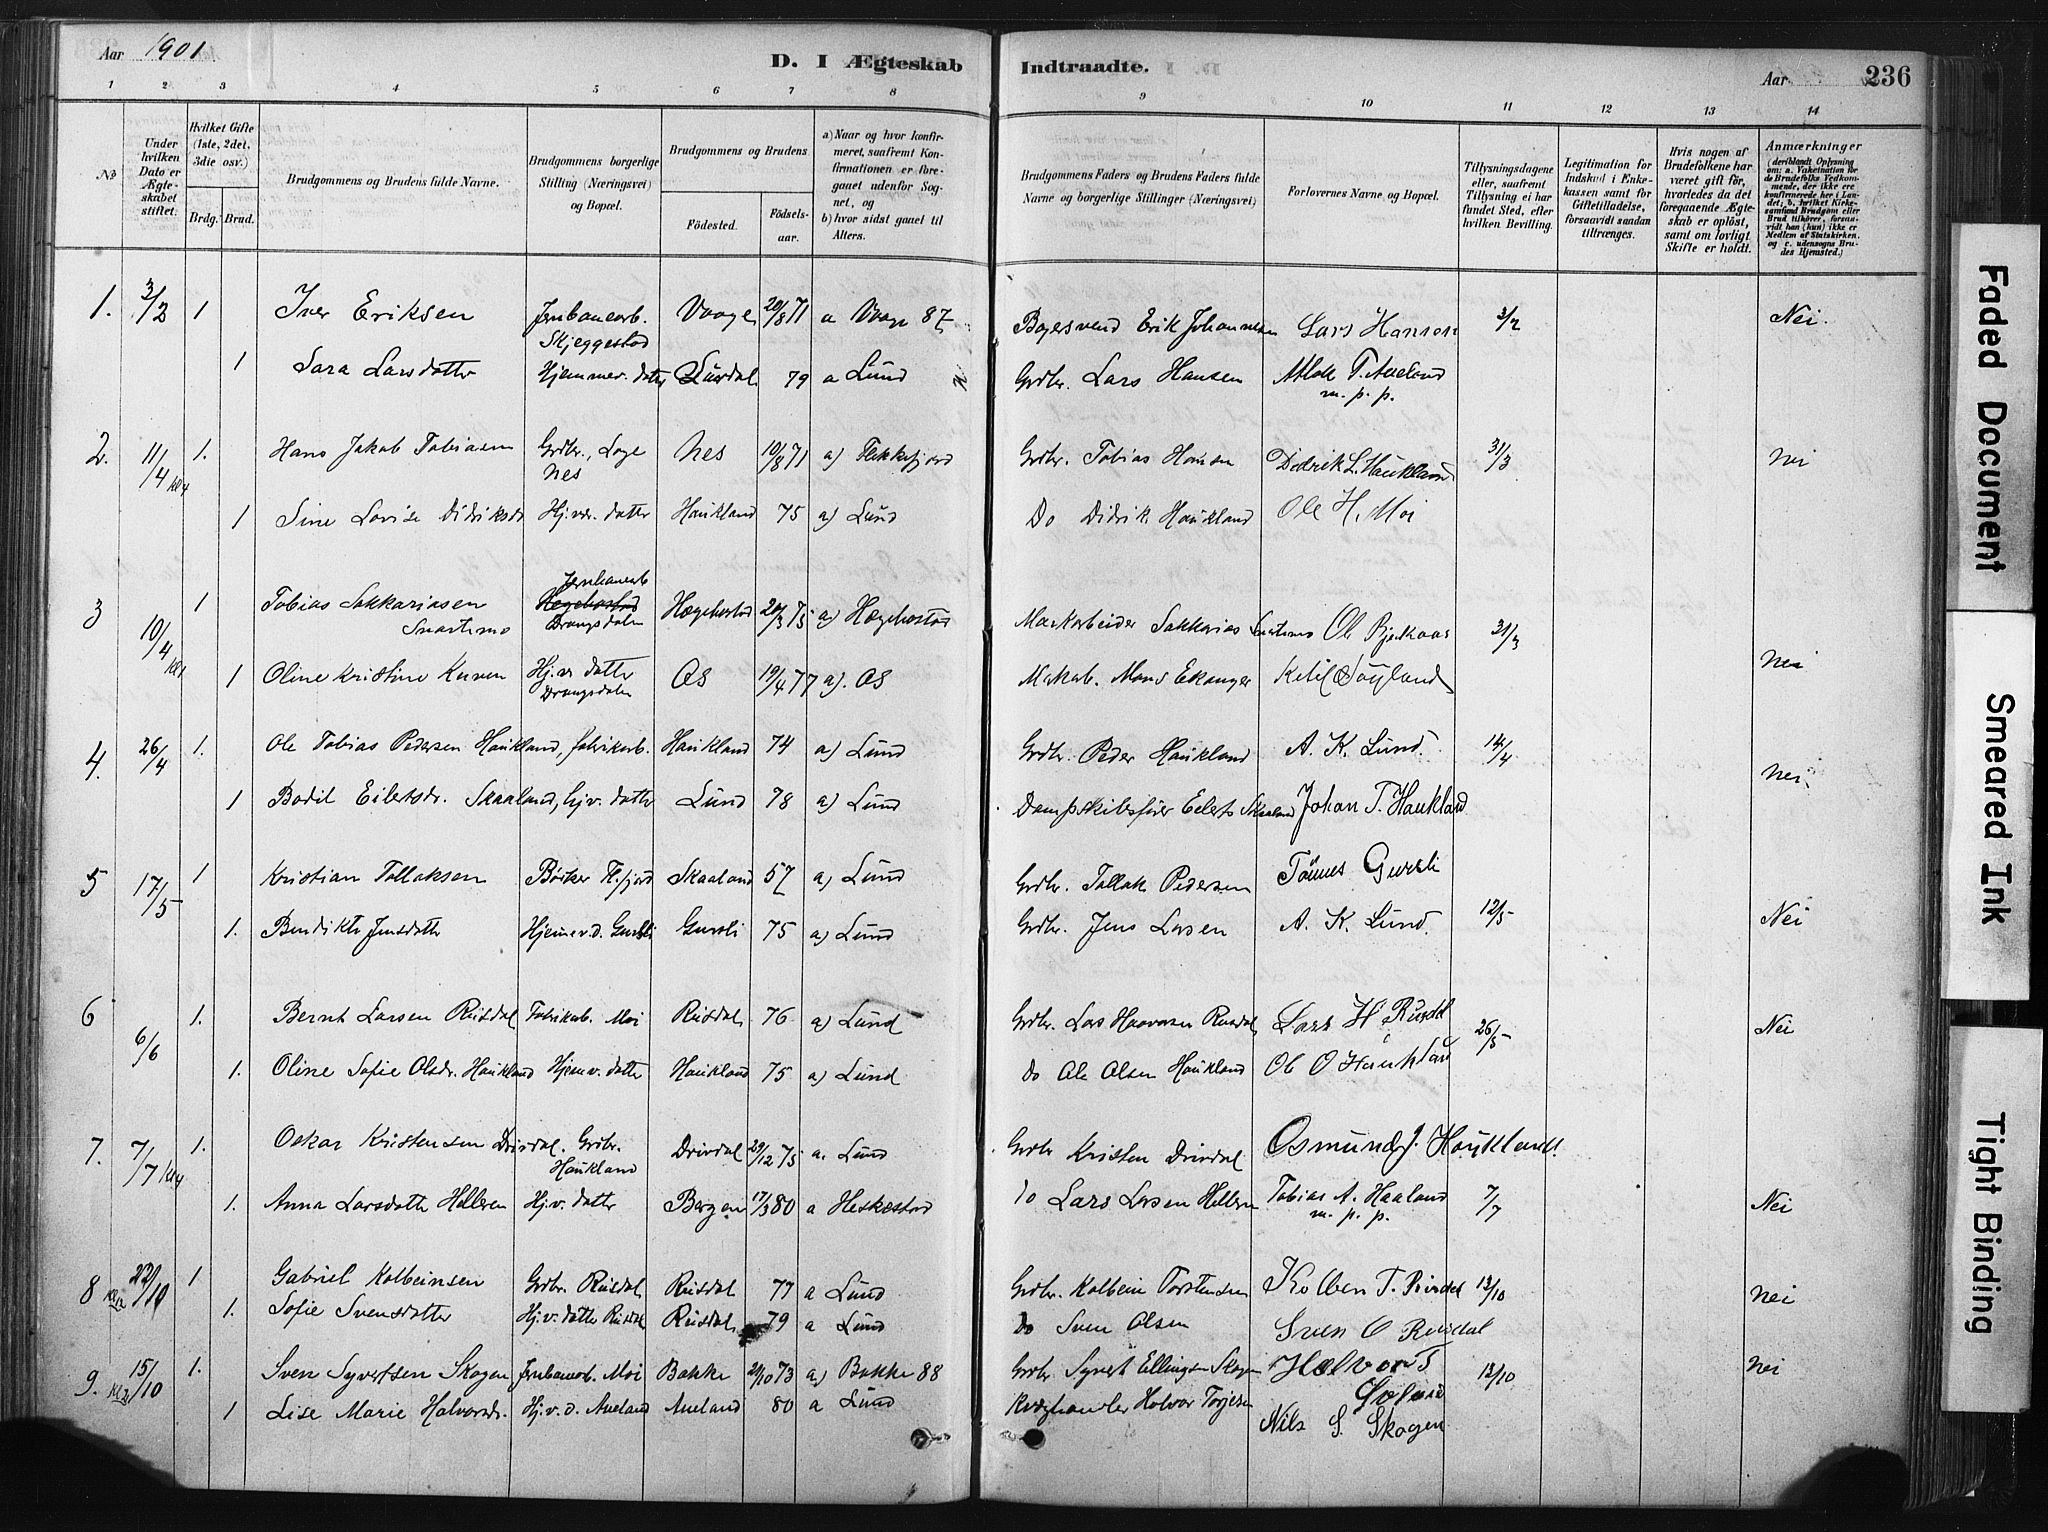 Aar 1901
D. I Ægteskab Indtraadte.
Aar 236
1 2 3 4 5 6 7 8 9 10 11 12 13 14
No
Under hvilken Dato er Ægteskabet stiftet.
Hvilket Gifte (1ste, 2det, 3die osv.)
Brdg. Brud.
Brudgommens og Brudens fulde Navne.
Brudgommens borgerlige Stilling (Næringsvei) og Bopæl.
Brudgommens og Brudens
Fødested. Fødsels-aar.
a) Naar og hvor konfirmeret, saafremt Konfirmationen er foregaaet udenfor Sognet, og
b) hvor sidst gaaet til Alters.
Brudgommens Faders og Brudens Faders fulde Navne og borgerlige Stillinger (Næringsvei)
Forlovernes Navne og Bopæl.
Tillysningsdagene eller, saafremt Tillysning ei har fundet Sted, efter hvilken Bevilling.
Legitimation for Indskud i Enkekassen samt for Giftetilladelse, forsaavidt saadan tiltrænges.
Hvis nogen af Brudefolkene har været gift før, hvorledes da det foregaaende Ægteskab er opløst, samt om lovligt Skifte er holdt.
Anmærkninger
(deriblandt Oplysning om: a. Vakcination for de Brudefolks Vedkommende, der ikke ere konfirmerede her i Landet; b. hvilket Kirkesamfund Brudgom eller Brud tilhører, forsaavidt han (hun) ikke er Medlem af Statskirken, og c. udensogns Brudes Hjemsted.)
1. 3/2 1 Iver Eriksen Jernbanearb. Skjeggestad Vaage 20/8 71 a Vaage 87 Erik Johannesen Lars Hansen 3/2 Nei.
1 Sara Larsdatter Hjemmev. datter Surdal 79 a Lund Grdbr. Lars Hansen T. Aueland m. p. p.
2. 11/4 kl 4 1. Hans Jakob Tobiasen Grdbr., Loge Nes Nes 10/8 71 a) Flekkefjord Grdbr. Tobias Hansen Didrik L. Haukland 31/3 Nei
1 Sine Lovise Didriksdr Hj.v. datter Haukland 75 a) Lund Do Didrik Haukland Ole H. Moi
3 10/4 kl 1 1 Tobias Sakkariasen Snartemo Jernbanearb Drangsdalen Hægebostad 20/3 75 a) Hægebostad Markarbeider Sakkarias Snartemo 31/3
1 Oline Kristine Hj.v. datter Drangsdalen Os 19/4 77 a). Os Mons Ekanger Ketil Søyland Nei
4. 26/4 1. Ole Tobias Pedersen Haukland, fabrikarb. Haukland 74 a) Lund Grdbr. Peder Haukland A. K. Lund. 14/4
1 Bodil Eilertsdr. Skaaland, hj.v. datter Lund 78 a) Lund Dampskibsfører Eilert Skaaland Johan T. Haukland Nei
5 17/5 1 Kristian Tollaksen Bødker Fl.fjord Skaaland 57 a) Lund Grdbr. Tollak Pedersen Tönnes Gursli
1. Bendikte Jensdatter Hjemmev.d. Gursli Gursli 75 a) Lund Grdbr. Jens Larsen A. K. Lund. 12/5 Nei
6 6/6 1. Bernt Larsen Rusdal Fabrikarb. Moi Rusdal 76 a) Lund Grdbr. Lars Haavarsen Rusdal Lars H Rusdal 26/5 Nei
1. Oline Sofie Olsdr. Haukland Hjemv. datter Haukland 75 a) Lund Do Ole Olsen Haukland Ole O Haukland
7. 7/7 kl 4 1. Oskar Kristensen Drivdal. Grdbr. Haukland Drivdal 29/12 75 a. Lund Grdbr Kristen Drivdal Osmund J. Haukland.
1. Anna Larsdatter Helleren Hj.v. datter Bergen 17/3 80 a Heskestad Do Lars Larsen Helleren Tobias A. Haaland m. p. p. 7/7 Nei
8 22/10 1 Gabriel Kolbeinsen Grdbr. Rusdal Rusdal 77 a Lund Grdbr. Kolbein Torstensen Kolben T. Rusdal 13/10 Nei
1. Sofie Svensdatter Hj.v. datter Rusdal Rusdal 79 a Lund Do Sven Olsen Sven O Rusdal
9. 15/10 1. Sven Syvertsen Skogen Jernbanearb. Moi Bakke 24/10 73 a) Bakke 88 Grdbr Syvert Ellingsen Skogen Halvor T 13/10 Nei
1 Lise Marie Halvorsdr. Hj.v. d. Aueland Aueland 80 a Lund Kvæghandler Halvor Torjesen Nils S. Skogen
Faded Document
Smeared Ink
Tight Binding